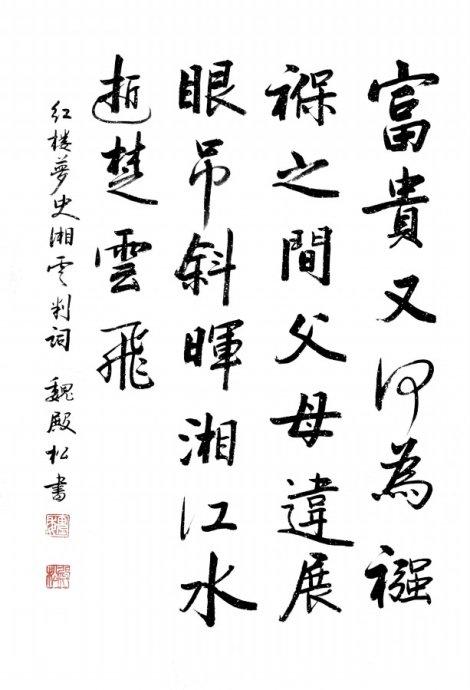 富貴又何為襁
褓之間父母違展
眼吊斜暉湘江水
逝楚雲飛
红楼夢史湘雲判詞 魏殿松書